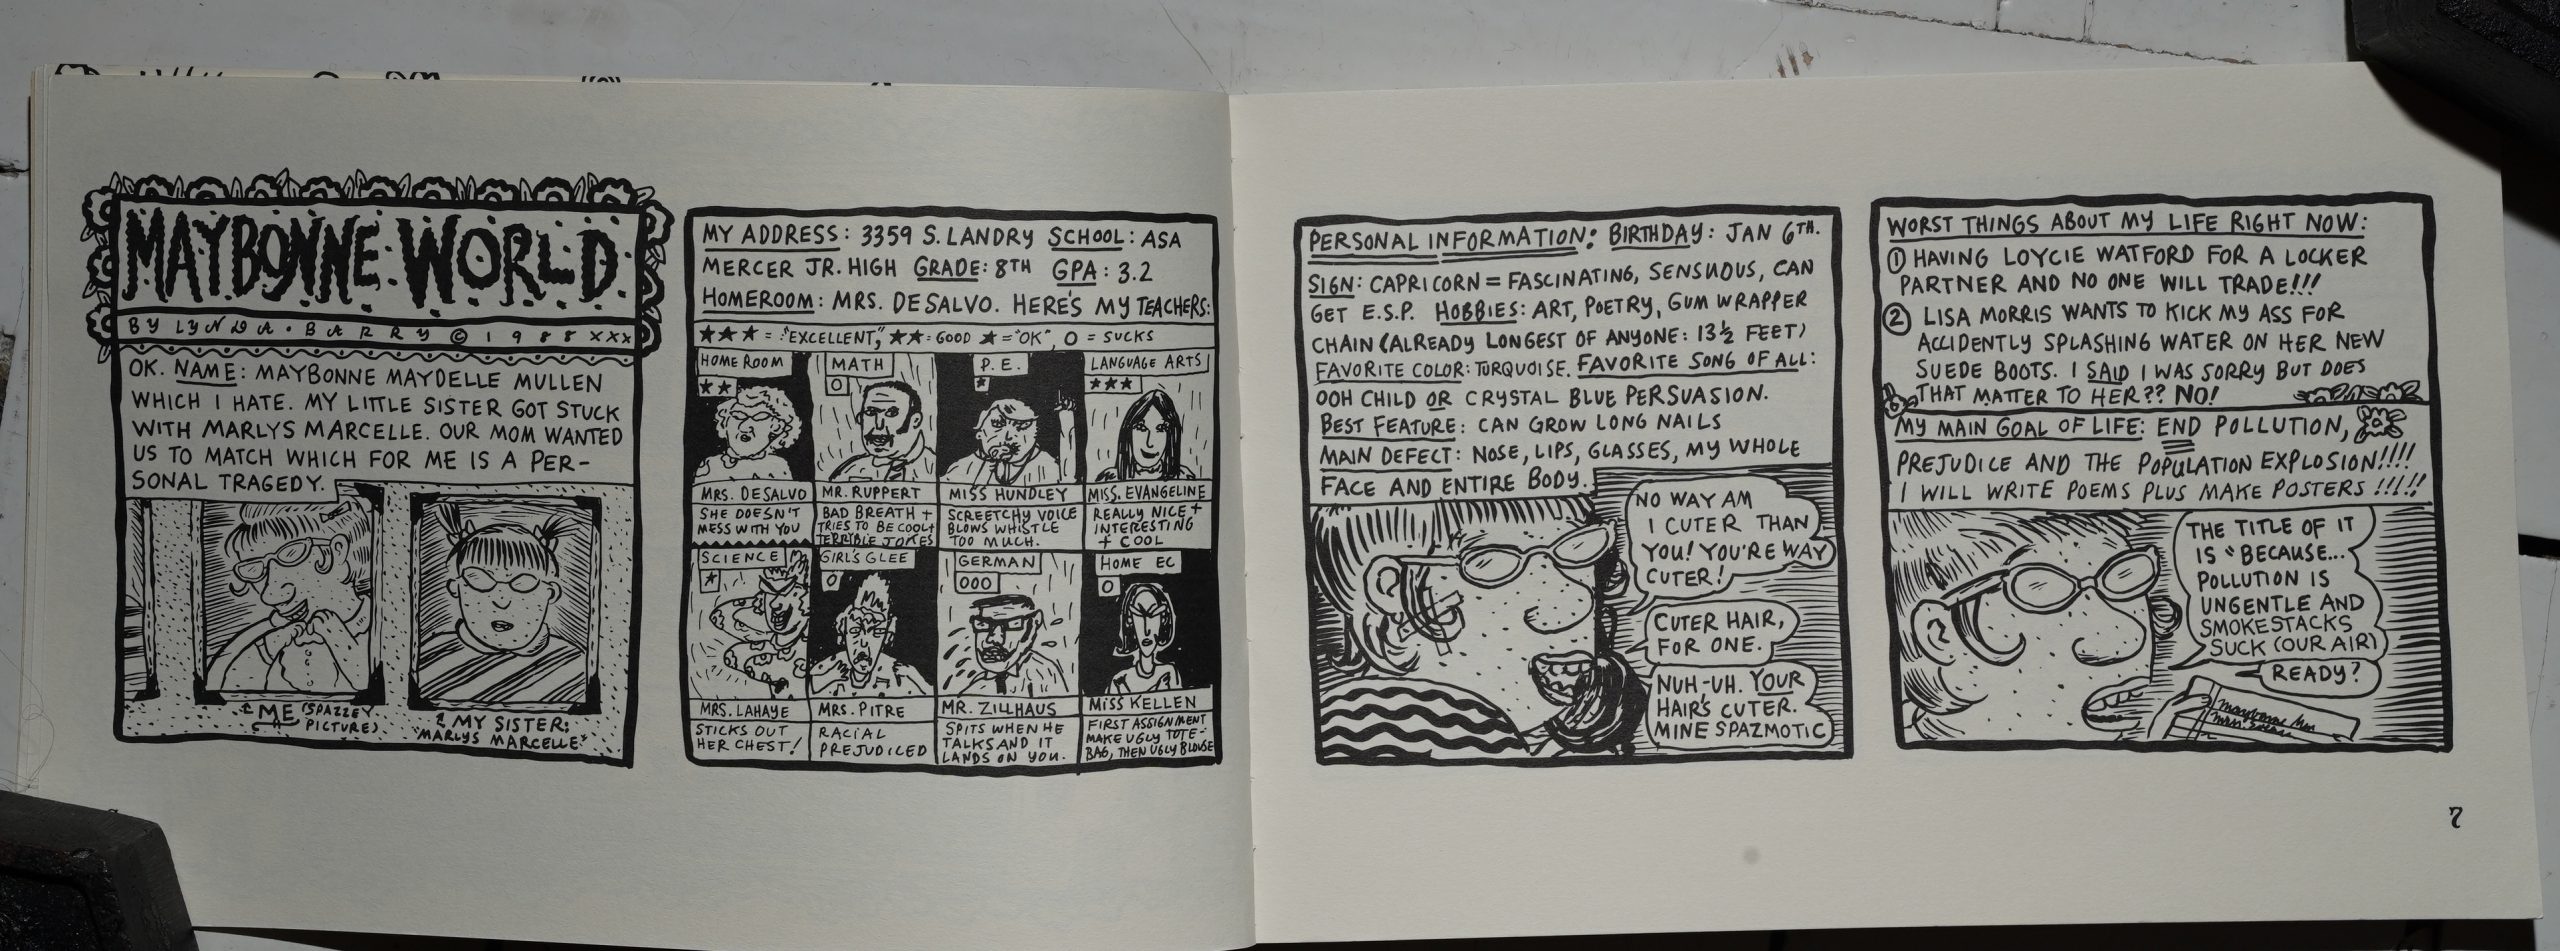 MAYBONNE WORLD
BY LYNDA • BARRY © 1988 XXX
OK. NAME: MAYBONNE MAYDELLE MULLEN
WHICH I HATE. MY LITTLE SISTER GOT STUCK
WITH MARLYS MARCELLE. OUR MOM WANTED
US TO MATCH WHICH FOR ME IS A PER-
SONAL TRAGEDY.
ME (SPAZZEY
PICTURE)
MY SISTER:
"MARLYS MARCELLE"
MY ADDRESS: 3359 S. LANDRY SCHOOL: ASA
MERCER JR. HIGH GRADE: 8TH GPA: 3.2
HOMEROOM: MRS. DESALVO. HERE'S MY TEACHERS:
★★★ = "EXCELLENT", ★★ = GOOD ★ = "OK", O = SUCKS
HOME ROOM
★★
MRS. DESALVO
SHE DOESN'T
MESS WITH YOU
MATH
O
MR. RUPPERT
BAD BREATH +
TRIES TO BE COOL +
TERRIBLE JOKES
P.E.
★
MISS HUNDLEY
SCREETCHY VOICE
BLOWS WHISTLE
TOO MUCH.
LANGUAGE ARTS
★★★
MISS. EVANGELINE
REALLY NICE +
INTERESTING
+ COOL
SCIENCE
★
MRS. LAHAYE
STICKS OUT
HER CHEST!
GIRL'S GLEE
O
MRS. PITRE
RACIAL
PREJUDICED
GERMAN
OOO
MR. ZILLHAUS
SPITS WHEN HE
TALKS AND IT
LANDS ON YOU.
HOME EC
O
MISS KELLEN
FIRST ASSIGNMENT
MAKE UGLY TOTE-
BAG, THEN UGLY BLOUSE
PERSONAL INFORMATION: BIRTHDAY: JAN 6TH.
SIGN: CAPRICORN = FASCINATING, SENSUOUS, CAN
GET E.S.P. HOBBIES: ART, POETRY, GUM WRAPPER
CHAIN (ALREADY LONGEST OF ANYONE: 13½ FEET)
FAVORITE COLOR: TURQUOISE. FAVORITE SONG OF ALL:
OOH CHILD OR CRYSTAL BLUE PERSUASION.
BEST FEATURE: CAN GROW LONG NAILS
MAIN DEFECT: NOSE, LIPS, GLASSES, MY WHOLE
FACE AND ENTIRE BODY.
NO WAY AM
I CUTER THAN
YOU! YOU'RE WAY
CUTER!
CUTER HAIR,
FOR ONE.
NUH-UH. YOUR
HAIR'S CUTER.
MINE SPAZMOTIC
WORST THINGS ABOUT MY LIFE RIGHT NOW:
① HAVING LOYCIE WATFORD FOR A LOCKER
PARTNER AND NO ONE WILL TRADE!!!
② LISA MORRIS WANTS TO KICK MY ASS FOR
ACCIDENTLY SPLASHING WATER ON HER NEW
SUEDE BOOTS. I SAID I WAS SORRY BUT DOES
THAT MATTER TO HER?? NO!
MY MAIN GOAL OF LIFE: END POLLUTION,
PREJUDICE AND THE POPULATION EXPLOSION!!!!
I WILL WRITE POEMS PLUS MAKE POSTERS!!!!!
THE TITLE OF IT
IS "BECAUSE...
POLLUTION IS
UNGENTLE AND
SMOKESTACKS
SUCK (OUR AIR)
READY?
7